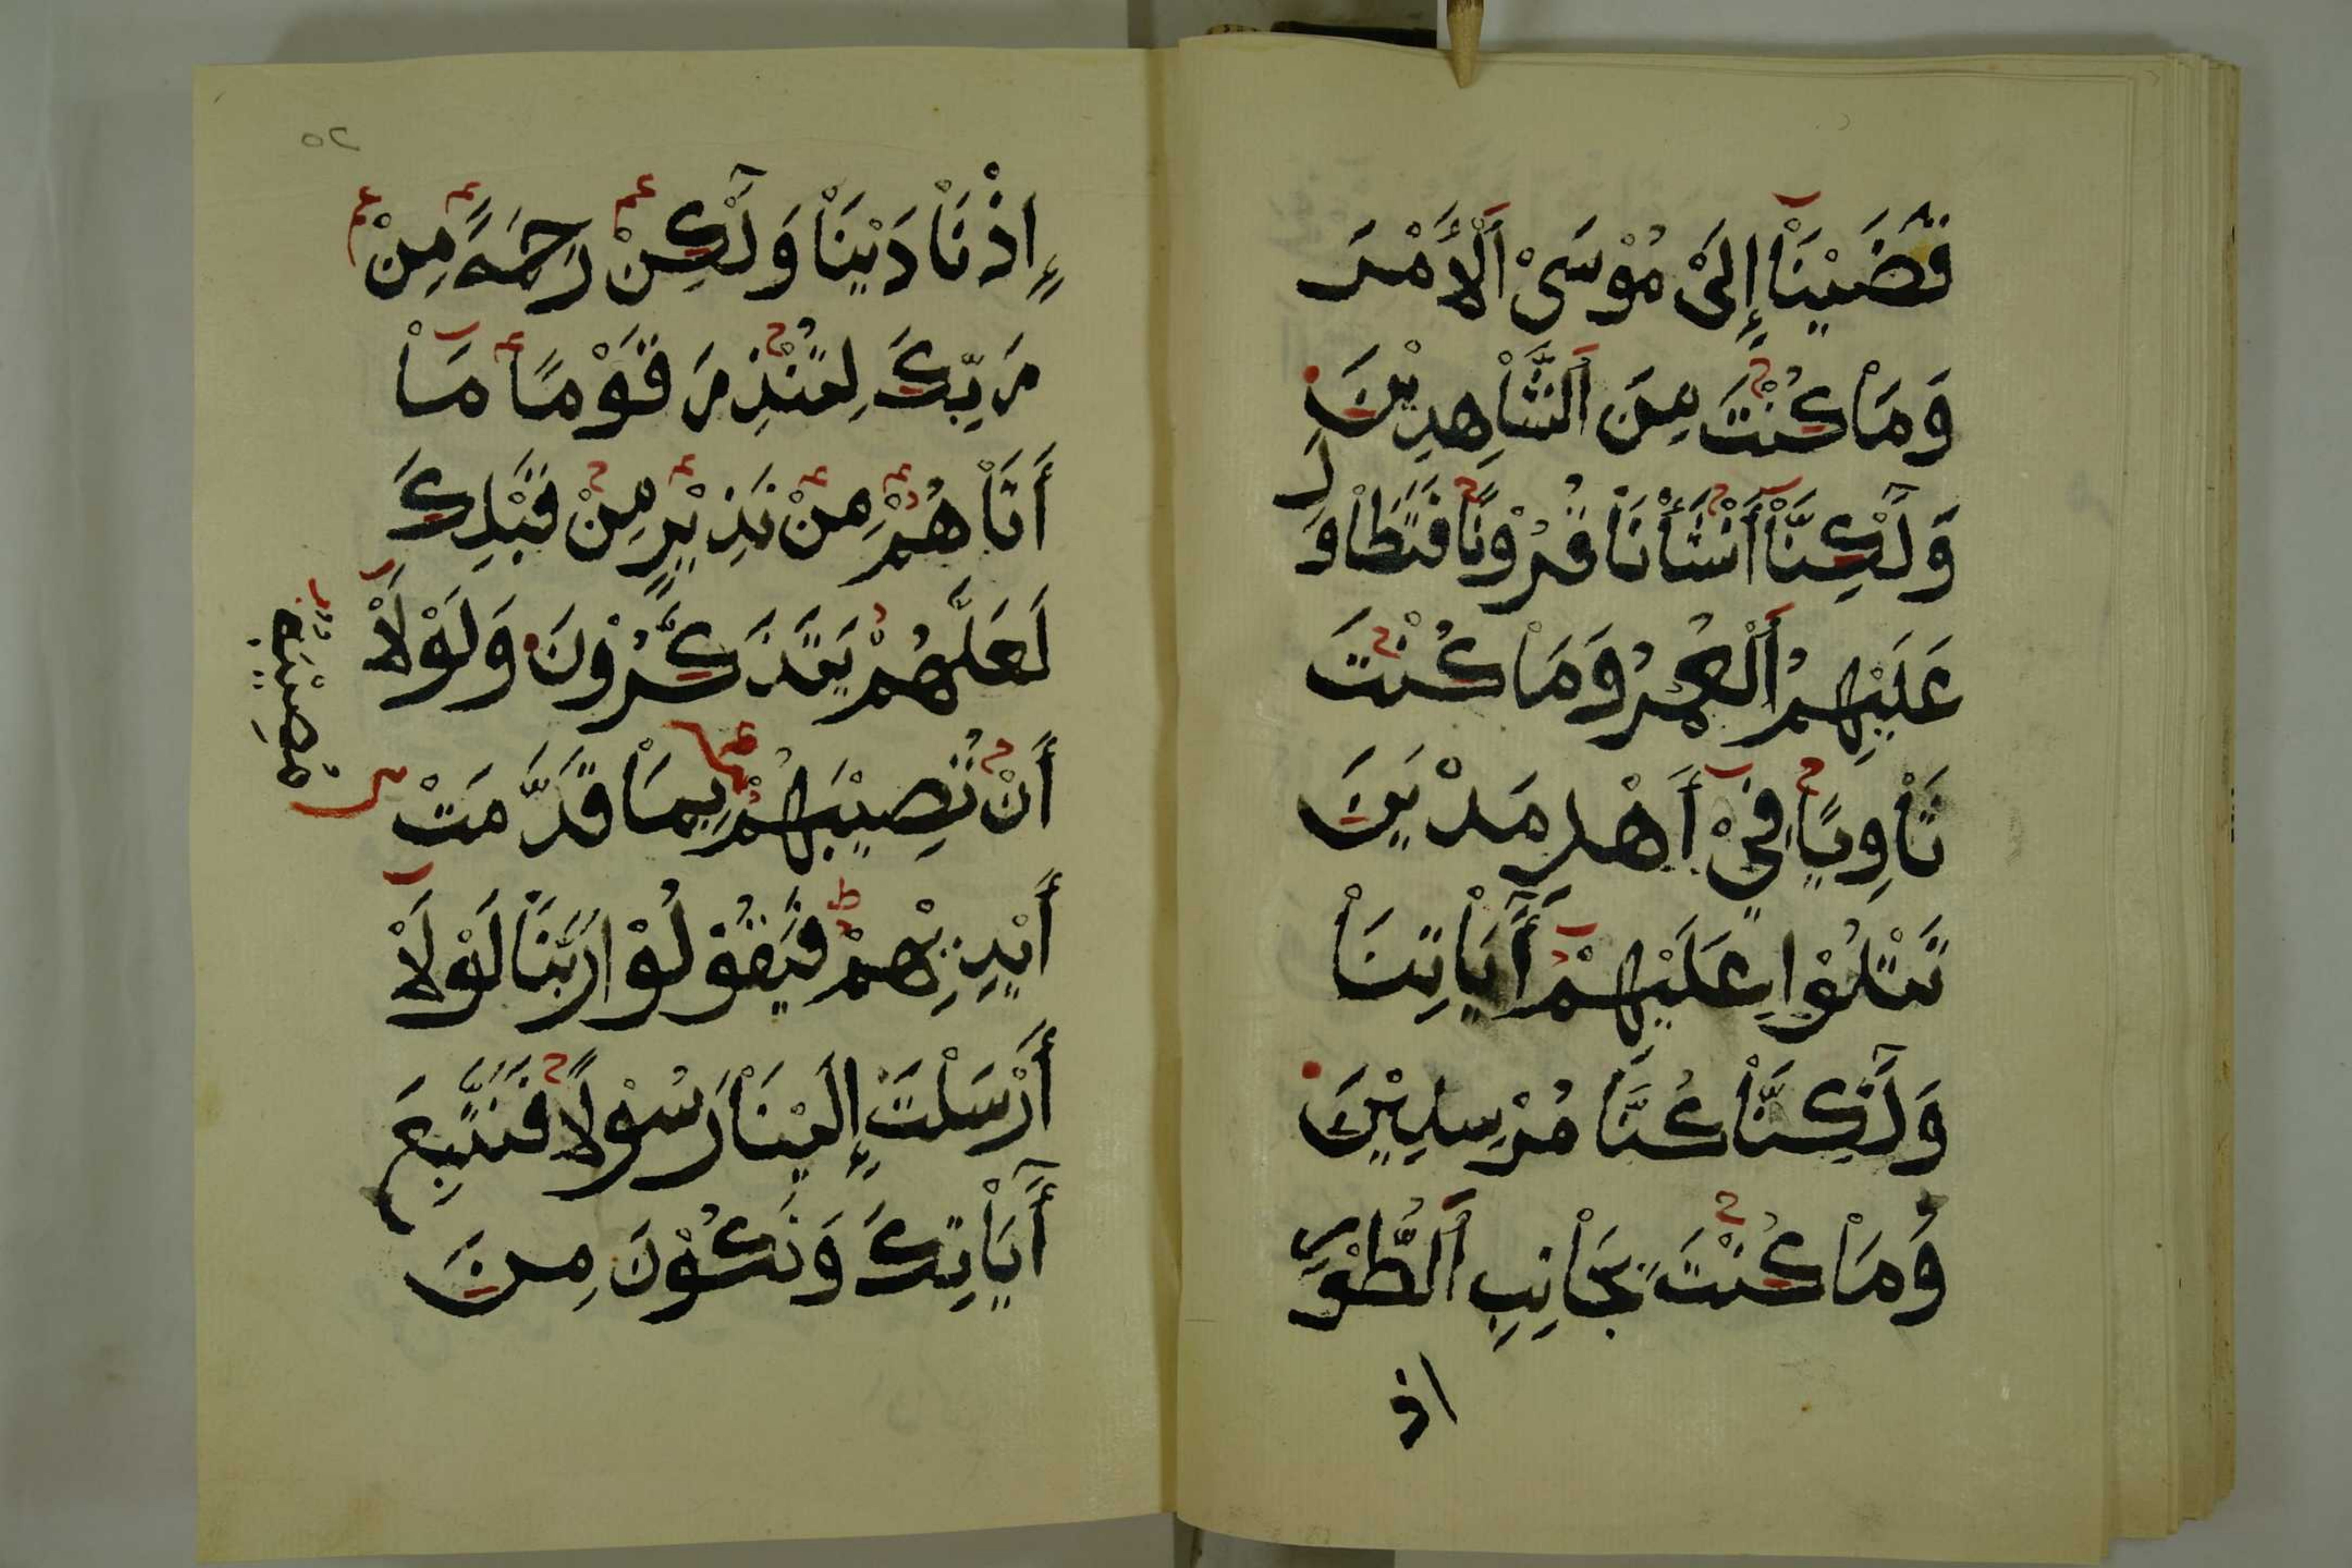 قَضَيْنَاْ إِلَىْ مُوْسَىْ اَلْأَمْرَ
وَمَاْ كُنْتَ مِنَ اَلْشَّاْهِدِيْنَ
وَلَٓكِنَّاْ أَنْشَأْنَاْ قُرُوْنًا فَتَطَاْوَلَ
عَلَيْهِمُ اَلْعُمُرُ وَمَاْ كُنْتَ
ثَاْوِيًا فِيْ أَهْلِ مَدْيَنَ
تَتْلُوْا عَلَيْهِمْ أَٓيَاْتِنَاْ
وَلَٓكِنَّاْ كُنَّاْ مُرْسِلِيْنَ
وَمَاْ كُنْتَ بِجَاْنِبِ اَلْطُّوْرِ
اذ
إِذْ نَاْدَيْنَاْ وَلَٓكِنْ رَحْمَةً مِنْ
رَبِّكَ لِتُنْذِرَ قَوْمًا مَاْ
أَتَاْهُمْ مِنْ نَذِيْرٍ مِنْ قَبْلِكَ
لَعَلَّهُمْ يَتَذَكَّرُوْنَ وَلَوْلَاْ
أَنْ تُصِيْبَهُمْ بِمَاْ قَدَّمَتْ
مُصِيْبَةٌ
أَيْدِيْهِمْ فَيَقُوْلُوْا رَبَّنَاْ لَوْلَاْ
أَرْسَلْتَ إِلَيْنَاْ رَسُوْلًا فَنَتَّبِعَ
أَٓيَاْتِكَ وَنَكُوْنَ مِنَ
٢٥